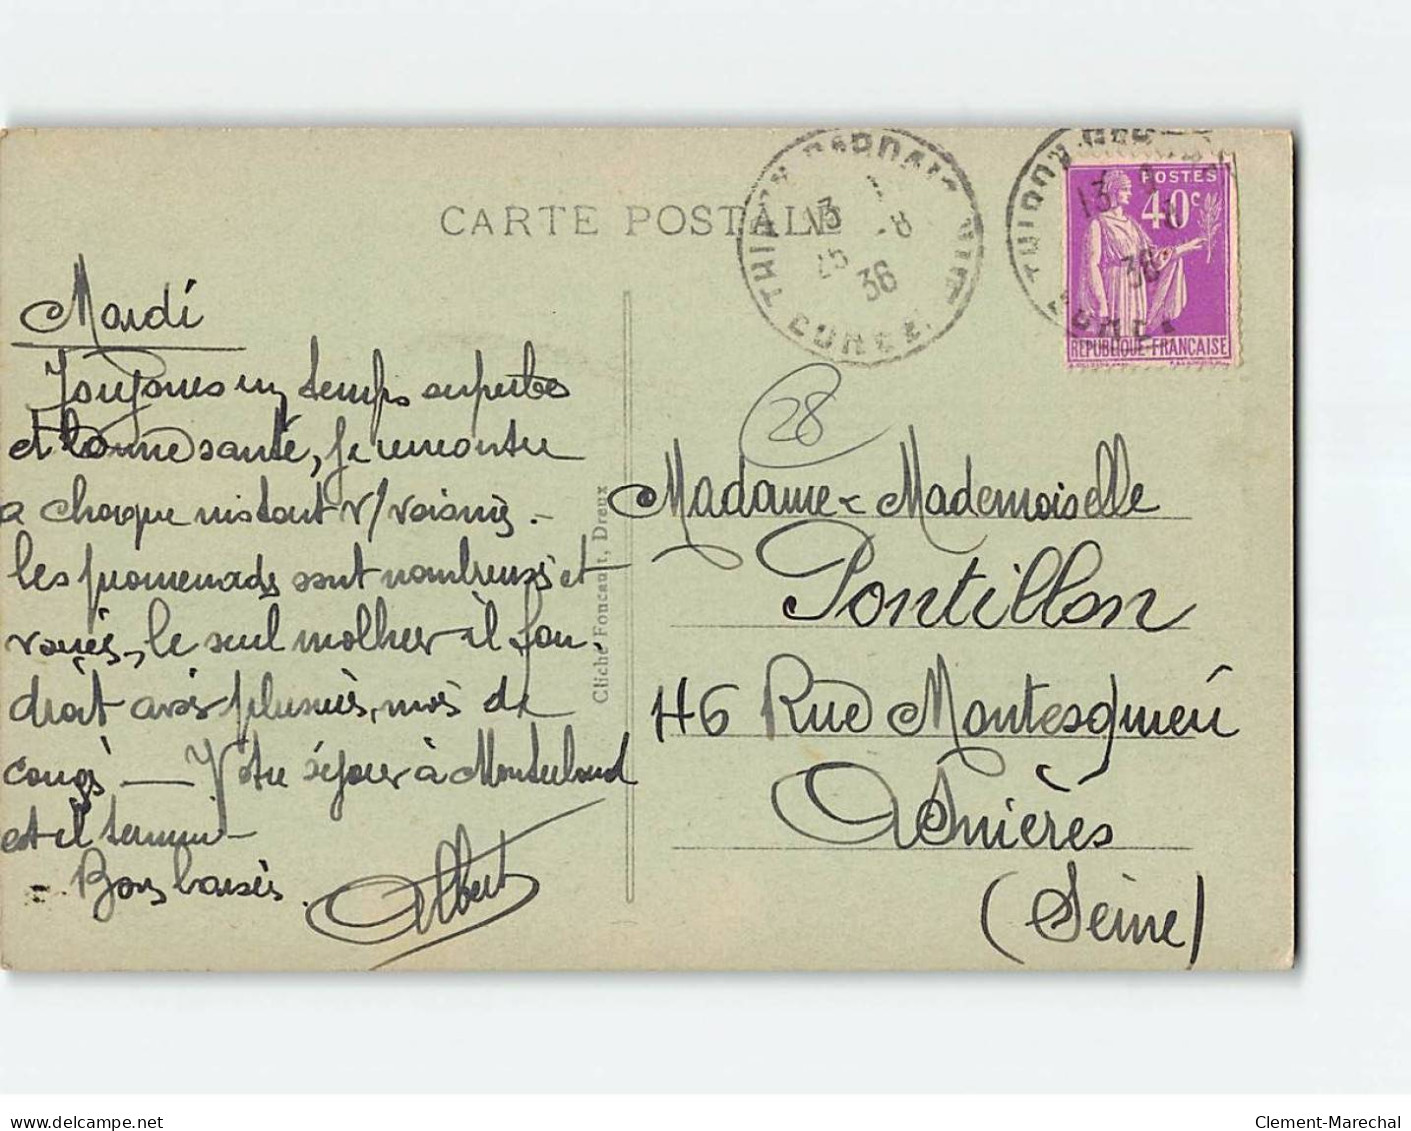 CARTE POSTALE
THIRON GARDAIS
13
25 -8
36
EURE
13
-8
36
POSTES
40c
REPUBLIQUE FRANÇAISE
Mardi
Toujours un temps superbe
et bonne santé, je rencontre
a chaque instant v/ voisins. -
Les promenades sont nombreuses et
variés, le seul malheur il fau-
drait avoir plusieurs mois de
congés — Votre séjour à Monterland
est il terminé
Bons baisers.
Albert
Cliché Foucault, Dreux
28
Madame & Mademoiselle
Pontillon
46 Rue Montesquieu
Asnières
(Seine)
delcampe.net
Clement-Marechal